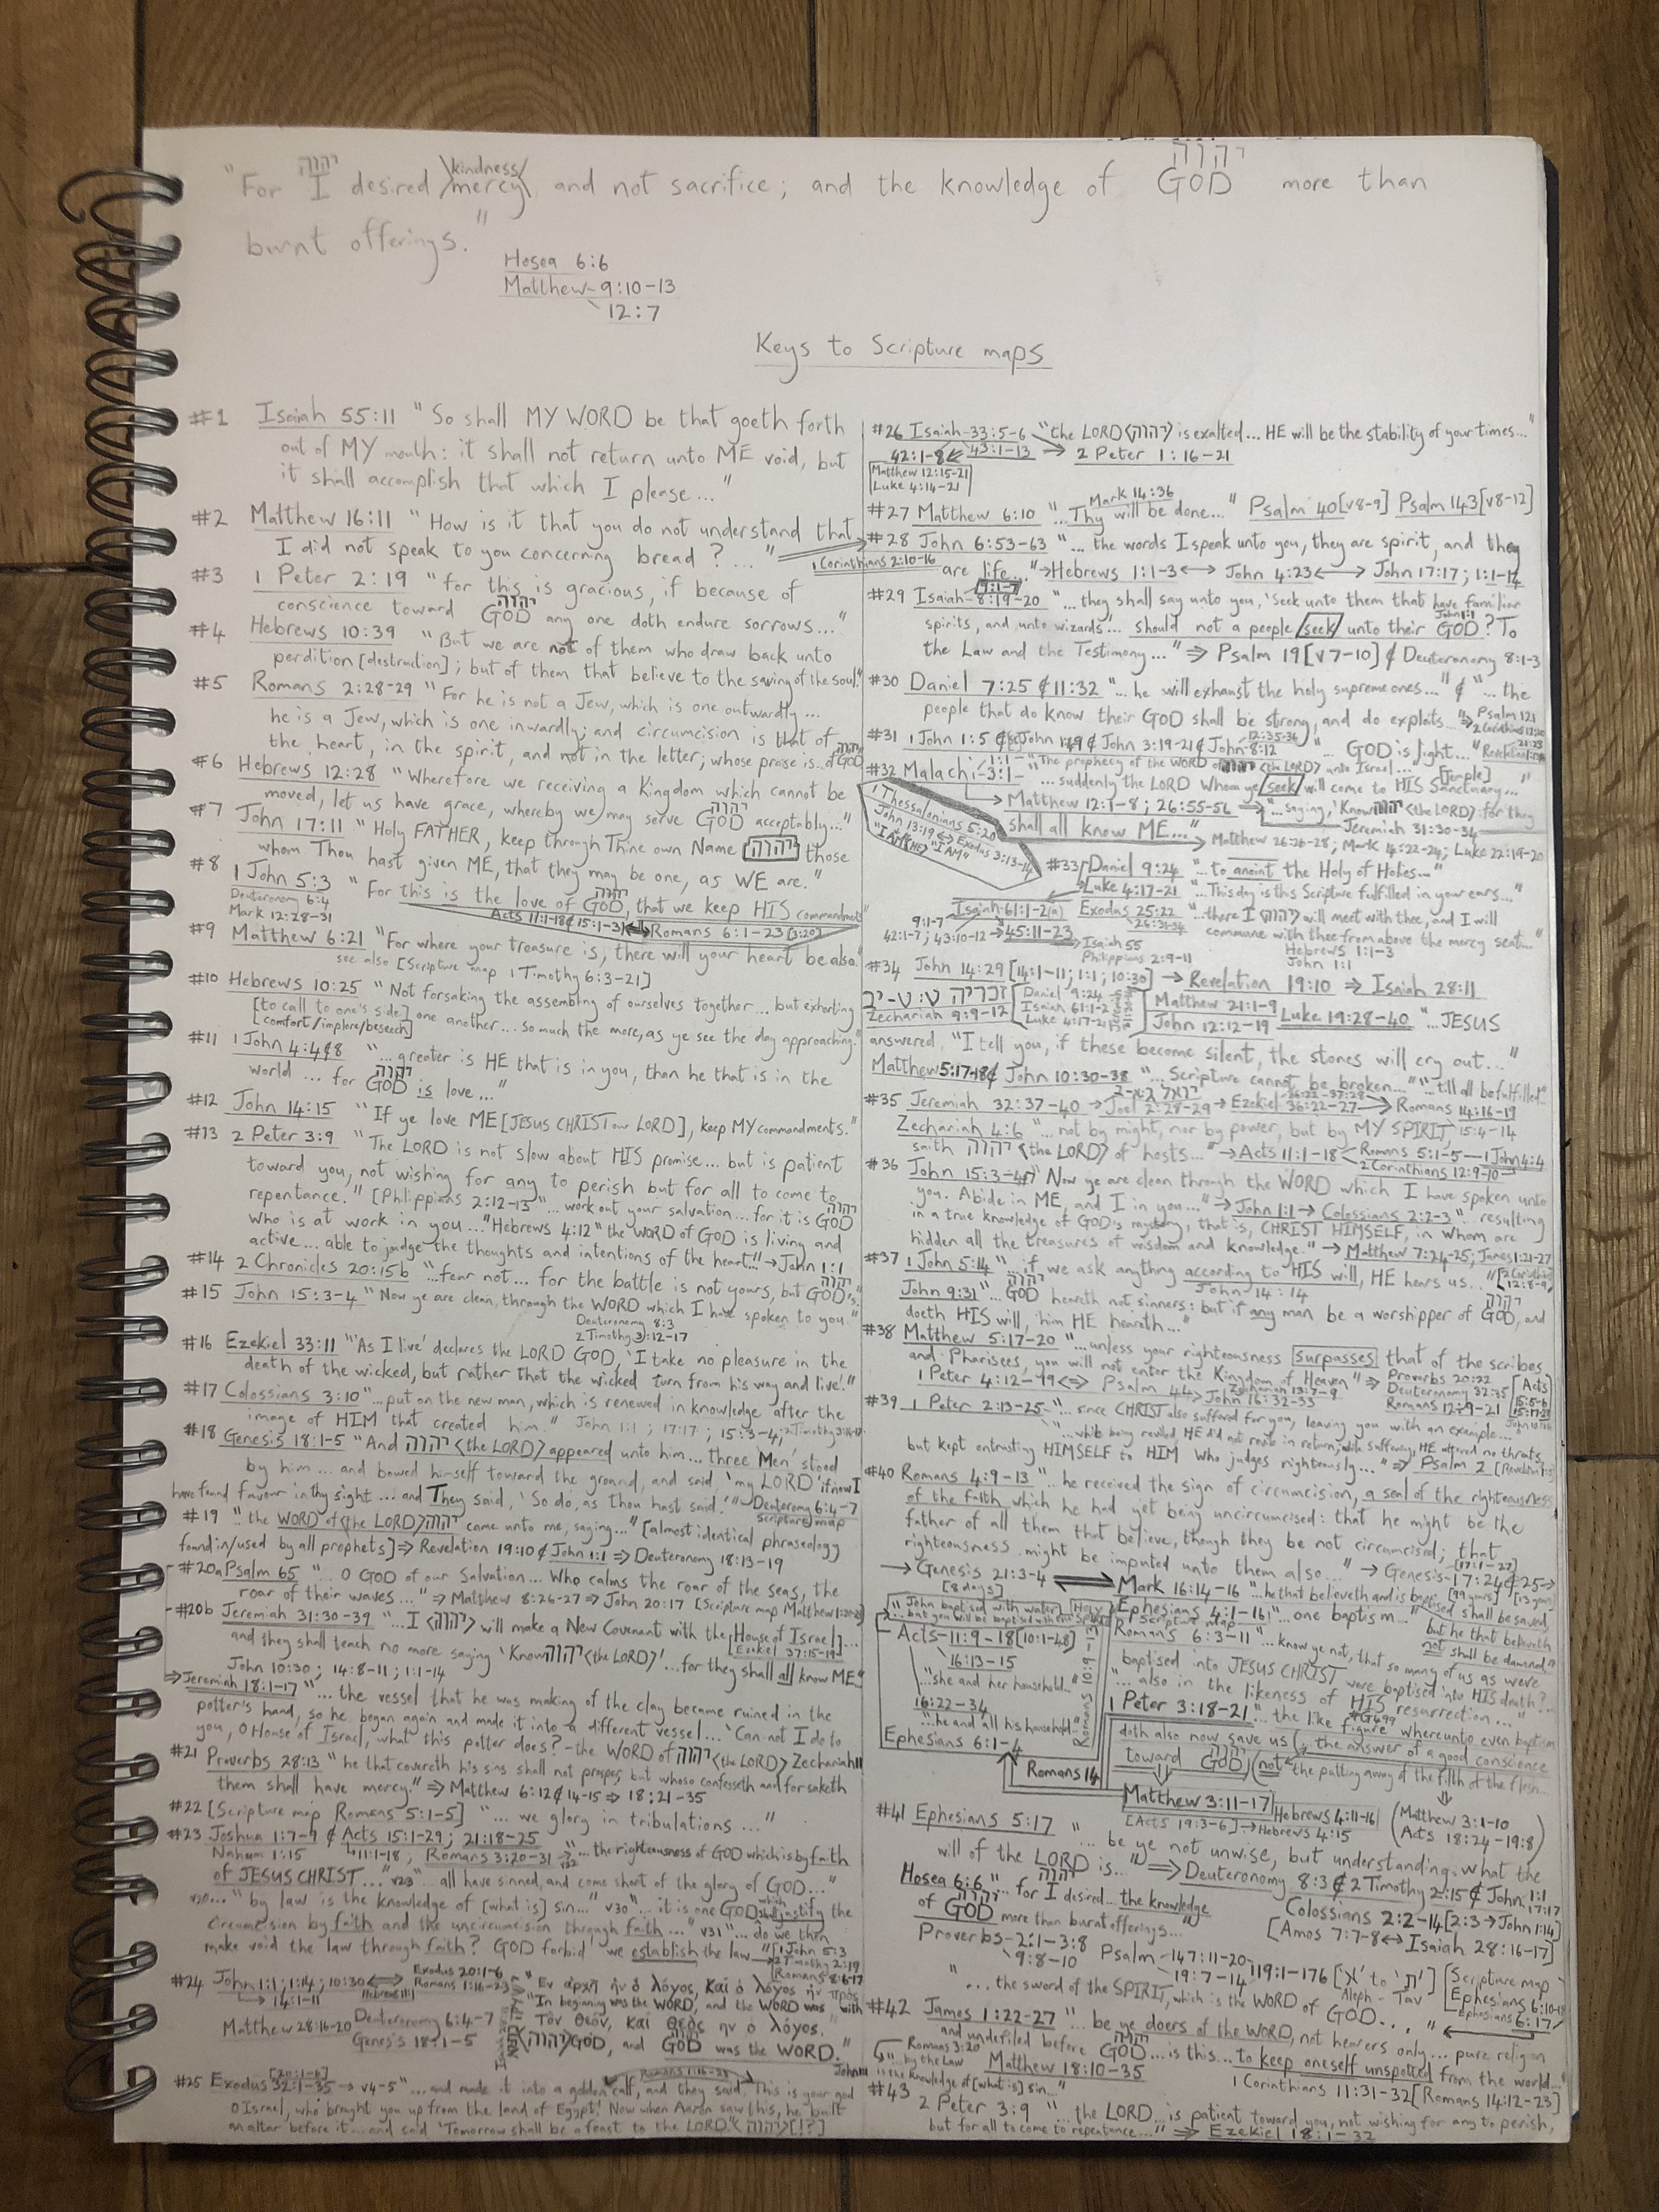 יהוה kindness יהוה
"For I desired \mercy/ and not sacrifice; and the knowledge of GOD more than
burnt offerings."
Hosea 6:6
Matthew-9:10-13
12:7
Keys to Scripture maps
#1 Isaiah 55:11 "So shall MY WORD be that goeth forth
out of MY mouth: it shall not return unto ME void, but
it shall accomplish that which I please..."
#2 Matthew 16:11 "How is it that you do not understand that
I did not speak to you concerning bread?..."
1 Corinthians 2:10-16
#3 1 Peter 2:19 "for this is gracious, if because of
conscience toward GOD יהוה any one doth endure sorrows..."
#4 Hebrews 10:39 "But we are not of them who draw back unto
perdition [destruction]; but of them that believe to the saving of the soul."
#5 Romans 2:28-29 "For he is not a Jew, which is one outwardly...
he is a Jew, which is one inwardly; and circumcision is that of
the heart, in the spirit, and not in the letter; whose praise is...of GOD יהוה
#6 Hebrews 12:28 "Wherefore we receiving a Kingdom which cannot be
moved, let us have grace, whereby we may serve GOD יהוה acceptably..."
#7 John 17:11 "Holy FATHER, keep through Thine own Name [יהוה] those
whom Thou hast given ME, that they may be one, as WE are."
#8 1 John 5:3 "For this is the love of GOD יהוה, that we keep HIS commandments"
Deuteronomy 6:4
Mark 12:28-31
Acts 11:1-18 & 15:1-31 ↔ Romans 6:1-23 [3:20]
#9 Matthew 6:21 "For where your treasure is, there will your heart be also."
see also [Scripture map 1 Timothy 6:3-21]
#10 Hebrews 10:25 "Not forsaking the assembling of ourselves together... but exhorting
[to call to one's side] one another... so much the more, as ye see the day approaching."
[comfort/implore/beseech]
#11 1 John 4:4&8 "...greater is HE that is in you, than he that is in the
world... for GOD יהוה is love..."
#12 John 14:15 "If ye love ME [JESUS CHRIST our LORD], keep MY commandments."
#13 2 Peter 3:9 "The LORD is not slow about HIS promise... but is patient
toward you, not wishing for any to perish but for all to come to
repentance." [Philippians 2:12-13 "...work out your salvation... for it is GOD יהוה
Who is at work in you..." Hebrews 4:12 "the WORD of GOD is living and
active... able to judge the thoughts and intentions of the heart." → John 1:1
#14 2 Chronicles 20:15b "...fear not... for the battle is not yours, but GOD's יהוה."
#15 John 15:3-4 "Now ye are clean, through the WORD which I have spoken to you"
Deuteronomy 8:3
2 Timothy 3:12-17
#16 Ezekiel 33:11 "'As I live' declares the LORD GOD, 'I take no pleasure in the
death of the wicked, but rather that the wicked turn from his way and live.'"
#17 Colossians 3:10 "...put on the new man, which is renewed in knowledge after the
image of HIM that created him." John 1:1; 17:17; 15:3-4; 2 Timothy
#18 Genesis 18:1-5 "And יהוה <the LORD> appeared unto him... three Men stood
by him... and bowed himself toward the ground, and said, 'my LORD if now I
have found favour in thy sight... and They said, 'So do, as thou hast said.'" Deuteronomy 6:4-7
Scripture map
#19 "the WORD of <the LORD> יהוה came unto me, saying..." [almost identical phraseology
found in/used by all prophets] ⇒ Revelation 19:10 & John 1:1 ⇒ Deuteronomy 18:13-19
#20a Psalm 65 "...O GOD of our Salvation... Who calms the roar of the seas, the
roar of their waves..." ⇒ Matthew 8:26-27 ⇒ John 20:17 [Scripture map Matthew
#20b Jeremiah 31:30-39 "...I <יהוה> will make a New Covenant with the [House of Israel]...
Ezekiel 37:15-19
and they shall teach no more saying 'Know יהוה <the LORD>'...for they shall all know ME"
John 10:30; 14:8-11; 1:1-14
⇒ Jeremiah 18:1-17 "...the vessel that he was making of the clay became ruined in the
potter's hand, so he began again and made it into a different vessel... 'Can not I do to
you, O House of Israel, what this potter does? - the WORD of יהוה <the LORD> Zechariah 11
#21 Proverbs 28:13 "he that covereth his sins shall not prosper, but whoso confesseth and forsaketh
them shall have mercy." ⇒ Matthew 6:12 & 14-15 ⇒ 18:21-35
#22 [Scripture map Romans 5:1-5] "...we glory in tribulations..."
#23 Joshua 1:7-9 & Acts 15:1-29; 21:18-25
Nahum 1:15 11:1-18; Romans 3:20-31 v22 "...the righteousness of GOD which is by faith
of JESUS CHRIST..." v23 "...all have sinned, and come short of the glory of GOD..."
v20... "by law is the knowledge of [what is] sin..." v30 "...it is one GOD which shall justify the
circumcision by faith and the uncircumcision through faith..." v31 "...do we then
make void the law through faith? GOD forbid! we establish the law..." [1 John 5:3
2 Timothy 2:19
[Romans 8:6-17
#24 John 1:1; 1:14; 10:30 ⇔ Exodus 20:1-6
Romans 1:16-23
14:1-11
"Εν αρχη ην ο λογος, και ο λογος ην προς
"In beginning was the WORD, and the WORD was with
Τον Θεον, και Θεος ην ο λογος."
<יהוה> GOD, and GOD was the WORD."
Matthew 28:16-20 Deuteronomy 6:4-7
Genesis 18:1-5
Romans 1:16-23
#25 Exodus 32:1-35 → v4-5 "...and made it into a golden calf, and they said, 'This is your god
[20:1-6]
O Israel, who brought you up from the land of Egypt!' Now when Aaron saw this, he built
an altar before it... and said 'Tomorrow shall be a feast to the LORD' <יהוה> [!?]
#26 Isaiah-33:5-6 "the LORD <יהוה> is exalted... HE will be the stability of your times..."
42:1-8 43:1-13 → 2 Peter 1:16-21
Matthew 12:15-21
Luke 4:14-21
Mark 14:36
#27 Matthew 6:10 "...Thy will be done..." Psalm 40 [v8-9] Psalm 143 [v8-12]
#28 John 6:53-63 "...the words I speak unto you, they are spirit, and they
are life..." → Hebrews 1:1-3 ↔ John 4:23 ↔ John 17:17; 1:1-14
9:1-7
#29 Isaiah-8:19-20 "...they shall say unto you, 'Seek unto them that have familiar
spirits, and unto wizards'... should not a people [seek] unto their GOD? To
the Law and the Testimony..." ⇒ Psalm 19 [v7-10] & Deuteronomy 8:1-3
#30 Daniel 7:25 & 11:32 "...he will exhaust the holy supreme ones..." & "...the
people that do know their GOD shall be strong, and do exploits..." ⇒ Psalm 121
#31 1 John 1:5 & John 1:9 & John 3:19-21 & John 8:12 "...GOD is light..."
12:35-36
1:1- "The prophecy of the WORD of יהוה <the LORD> unto Israel...
#32 Malachi-3:1- "...suddenly the LORD Whom ye [seek] will come to HIS Sanctuary..."
[temple]
→ Matthew 12:1-8; 26:55-56 ⇒ "...saying, 'Know יהוה <the LORD>: for they
shall all know ME..." Jeremiah 31:30-34
→ Matthew 26:26-28; Mark 4:22-24; Luke 22:19-20
1 Thessalonians 5:20
John 13:19 ↔ Exodus 3:13-14
"I AM <HE>" "I AM"
#33 Daniel 9:24 "...to anoint the Holy of Holies..."
Luke 4:17-21 "...This day is this Scripture fulfilled in your ears..."
Isaiah-61:1-2(a) Exodus 25:22 "...there I <יהוה> will meet with thee, and I will
commune with thee from above the mercy seat..."
9:1-7
42:1-7; 43:10-12 → 45:11-23
Isaiah 55
Philippians 2:9-11
Hebrews 1:1-3
John 1:1
#34 John 14:29 [14:1-11; 1:1; 10:30] → Revelation 19:10 ⇒ Isaiah 28:11
זכריה ט: ט-יב
Zechariah 9:9-12
Daniel 9:24
Isaiah 61:1-2
Luke 4:17-21
Matthew 21:1-9
John 12:12-19
Luke 19:28-40 "...JESUS
answered, "I tell you, if these become silent, the stones will cry out..."
Matthew 5:17-18 & John 10:30-38 "...Scripture cannot be broken..." "...till all be fulfilled"
#35 Jeremiah 32:37-40 → Joel 2:28-29 → Ezekiel 36:22-27 → Romans 14:16-19
36:22-37:28
Zechariah 4:6 "...not by might, nor by power, but by MY SPIRIT, 15:4-14
saith יהוה <the LORD> of hosts..." → Acts 11:1-18 Romans 5:1-5 — 1 John 4:4
2 Corinthians 12:9-10
#36 John 15:3-4 "Now ye are clean through the WORD which I have spoken unto
you. Abide in ME, and I in you..." → John 1:1 → Colossians 2:2-3 "...resulting
in a true knowledge of GOD's mystery, that is, CHRIST HIMSELF, in whom are
hidden all the treasures of wisdom and knowledge." → Matthew 7:24-25; James 1:21-27
#37 1 John 5:14 "...if we ask anything according to HIS will, HE hears us..."
John 14:14
John 9:31 "...GOD יהוה heareth not sinners: but if any man be a worshipper of GOD יהוה, and
doeth HIS will, him HE heareth..."
#38 Matthew 5:17-20 "...unless your righteousness [surpasses] that of the scribes
and Pharisees, you will not enter the Kingdom of Heaven" ⇒ Proverbs 20:22
Deuteronomy 32:35
Romans 12:9-21
1 Peter 4:12-19 ⇔ Psalm 44 Zechariah 13:7-9
John 16:32-33
[Acts
15:5-6
#39 1 Peter 2:13-25 "...since CHRIST also suffered for you, leaving you with an example..."
"...while being reviled, HE did not revile in return; while suffering, HE uttered no threats,
but kept entrusting HIMSELF to HIM Who judges righteously..." ⇒ Psalm 2
#40 Romans 4:9-13 "...he received the sign of circumcision, a seal of the righteousness
of the faith which he had yet being uncircumcised: that he might be the
father of all them that believe, though they be not circumcised; that
righteousness might be imputed unto them also..." → Genesis-17:24 & 25 →
[17:1-27]
→ Genesis 21:3-4 ⇔ Mark 16:14-16 "...he that believeth and is baptised shall be saved,
[8 days] [99 years] [13 years]
but he that believeth
not shall be damned"
"John baptised with water
...but you will be baptised with the Holy Spirit
Ephesians 4:1-16 "...one baptism..."
Scripture map
Acts-11:9-18 [10:1-48]
16:13-15
"...she and her household..."
16:22-34
"...he and all his household..."
Ephesians 6:1-4
Romans 10:9-13
Romans 6:3-11 "...know ye not, that so many of us as were
baptised into JESUS CHRIST were baptised into HIS death?..
"...also in the likeness of HIS resurrection..."
1 Peter 3:18-21 "...the like figure whereunto even baptism
doth also now save us (... the answer of a good conscience
toward GOD יהוה, (not the putting away of the filth of the flesh...
Romans 14
Matthew 3:11-17
[Acts 19:3-6] → Hebrews 4:15
Hebrews 4:11-16
(Matthew 3:1-10
Acts 18:24-19:8)
#41 Ephesians 5:17 "...be ye not unwise, but understanding what the
will of the LORD יהוה is..." ⇒ Deuteronomy 8:3 & 2 Timothy 2:15 & John 1:1
17:17
Hosea 6:6 "...for I יהוה desired... the knowledge
of GOD יהוה more than burnt offerings..."
Colossians 2:2-14 [2:3 → John 1:14]
[Amos 7:7-8 ↔ Isaiah 28:16-17]
Proverbs-2:1-3:8
9:8-10
Psalm-147:11-20
19:7-14
119:1-176 ['א' to 'ת']
Aleph - Tav
[Scripture map
Ephesians 6:10-18
Ephesians 6:17
"...the sword of the SPIRIT, which is the WORD of GOD..."
#42 James 1:22-27 "...be ye doers of the WORD, not hearers only... pure religion
and undefiled before GOD יהוה... is this... to keep oneself unspotted from the world..."
Romans 3:20
"...by the Law
is the knowledge of [what is] sin..."
Matthew 18:10-35
1 Corinthians 11:31-32 [Romans 14:12-23]
#43 2 Peter 3:9 "...the LORD... is patient toward you, not wishing for any to perish,
but for all to come to repentance..." ⇒ Ezekiel 18:1-32